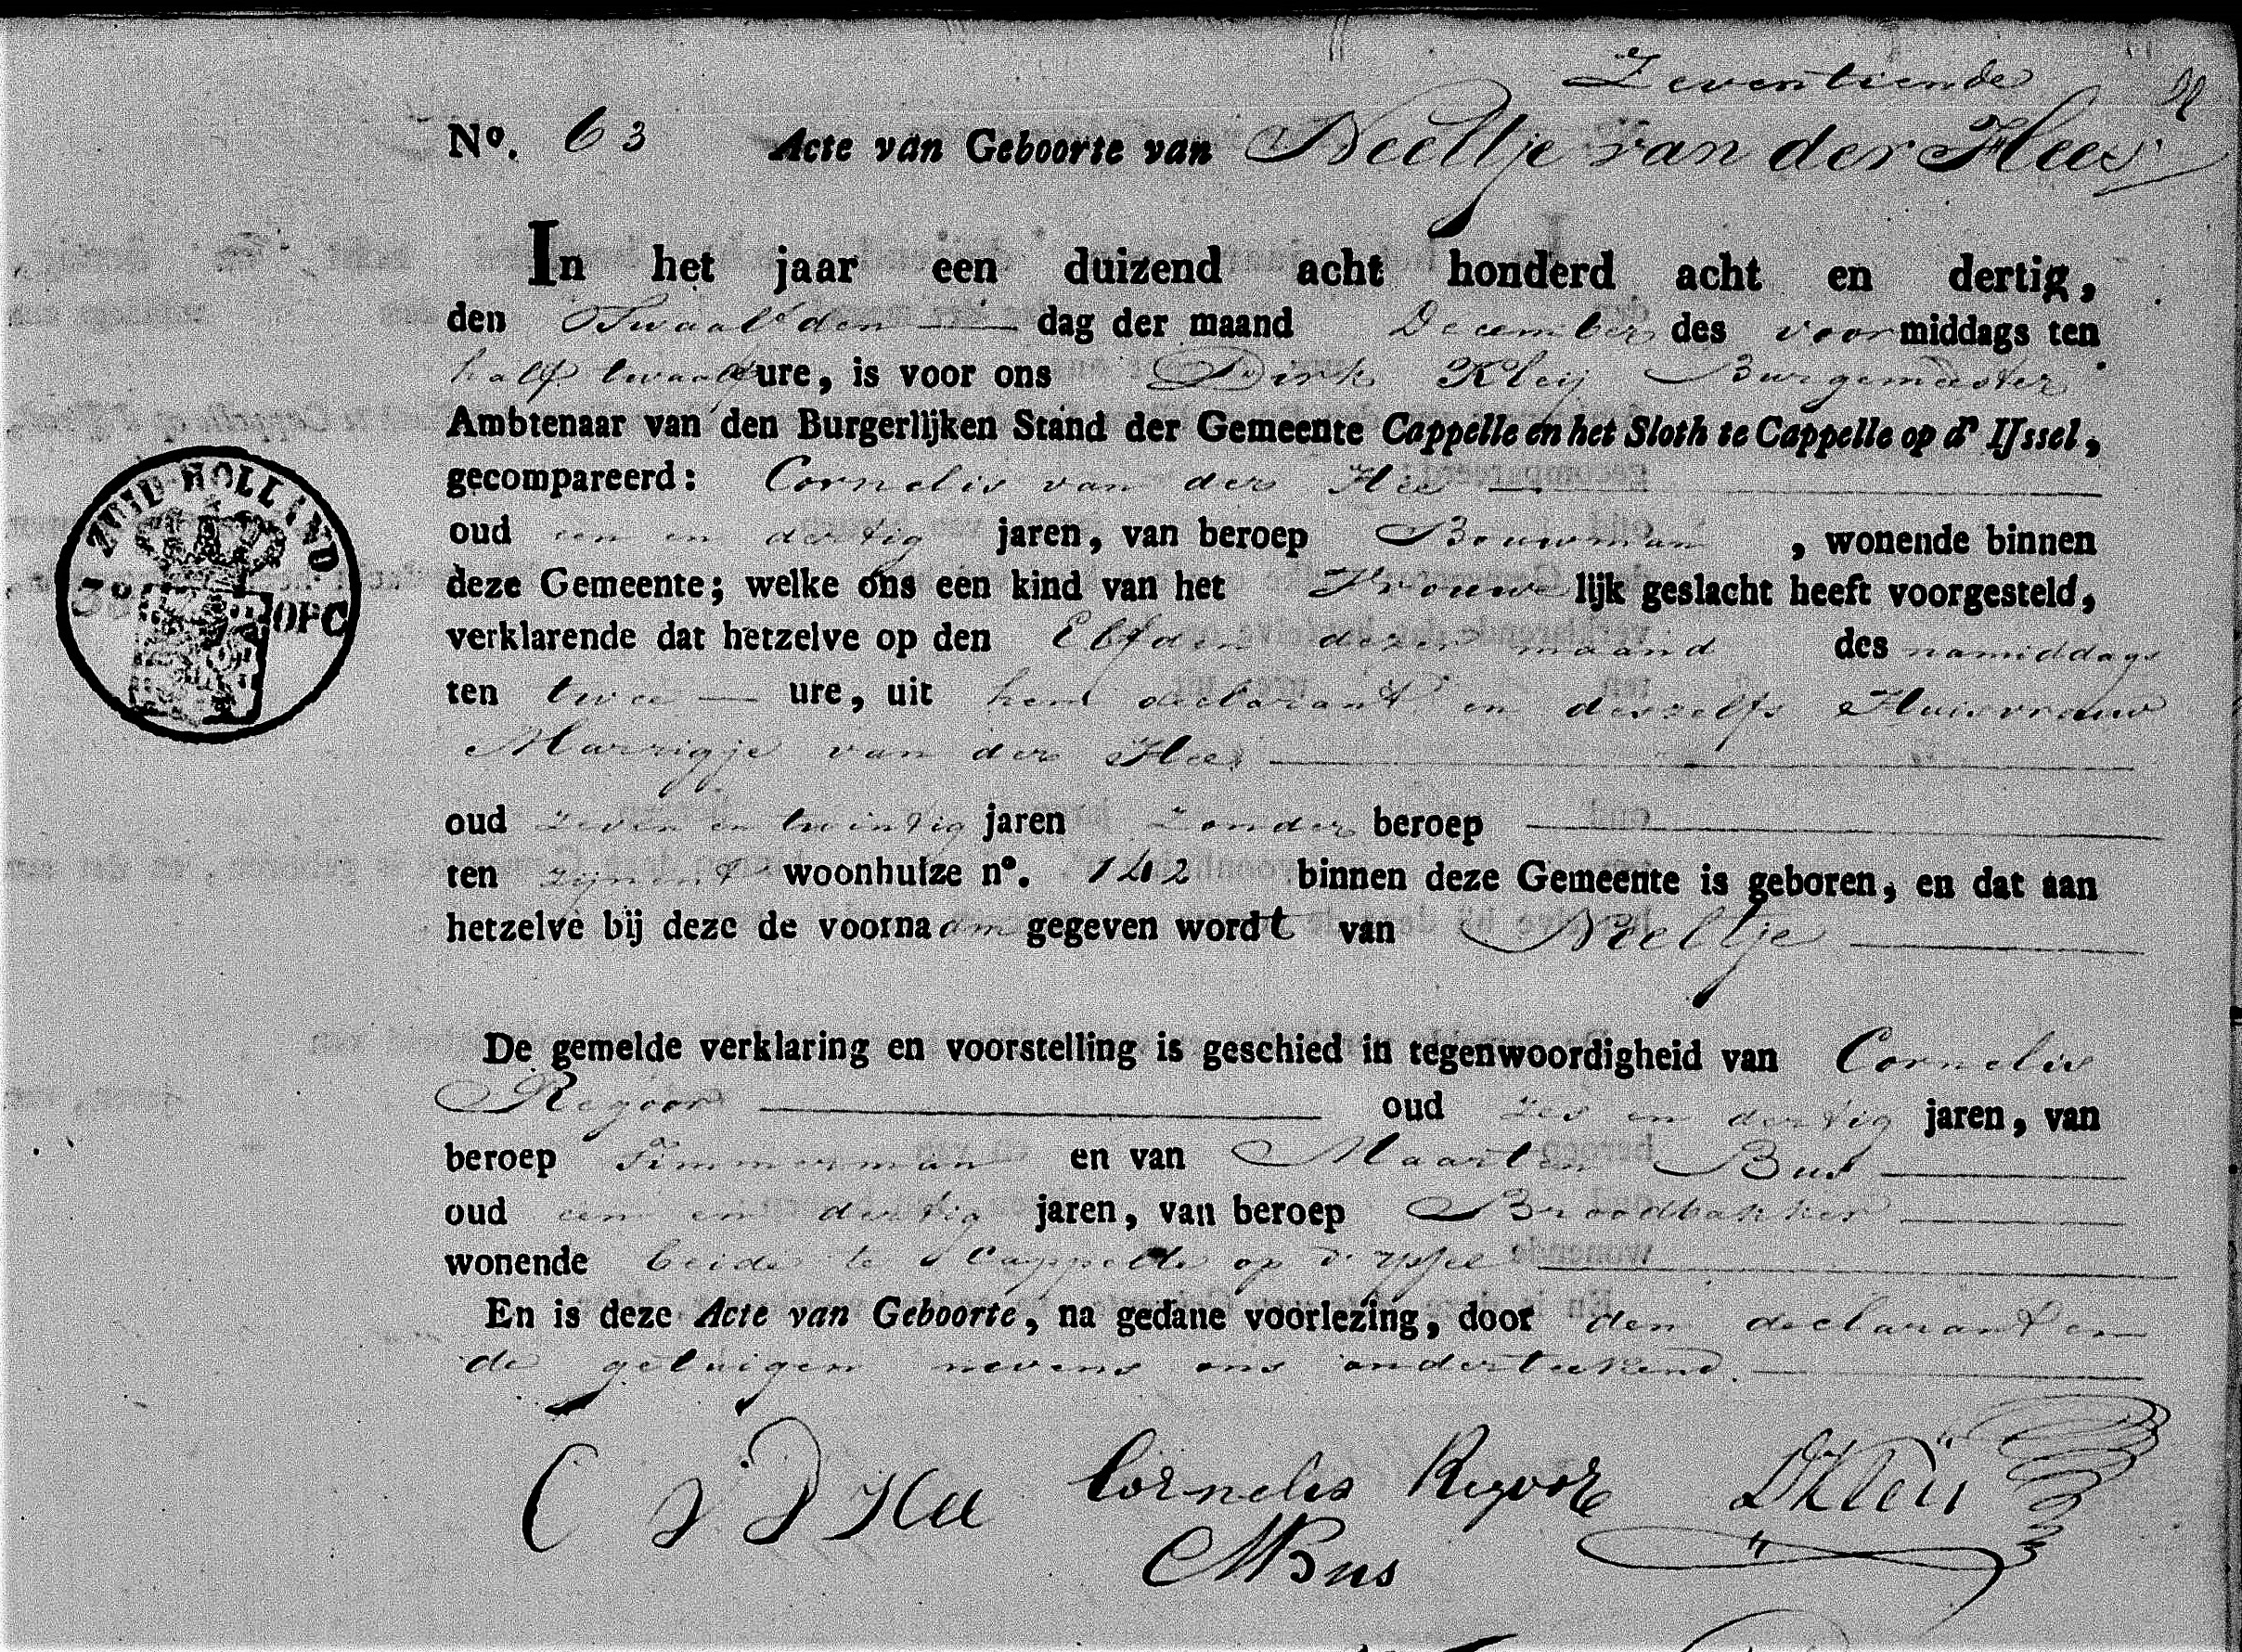 Zeventiende
N°. 63 Acte van Geboorte van Neeltje van der Hees
In het jaar een duizend acht honderd acht en dertig,
den Twaalfden dag der maand December des voormiddags ten
half twaalf ure, is voor ons Dirk Kleij Burgemeester
Ambtenaar van den Burgerlijken Stand der Gemeente Cappelle en het Sloth te Cappelle op d' IJssel,
gecompareerd: Cornelis van der Hee
oud een en dertig jaren, van beroep Bouwman, wonende binnen
ZUID-HOLLAND
deze Gemeente; welke ons een kind van het Vrouwelijk geslacht heeft voorgesteld,
verklarende dat hetzelve op den Elfden dezer maand des namiddags
ten twee ure, uit hem declarant en deszelfs Huisvrouw
Marrigje van der Hees
oud zeven en twintig jaren zonder beroep
ten zijnent woonhuize n°. 142 binnen deze Gemeente is geboren, en dat aan
hetzelve bij deze de voornaam gegeven wordt van Neeltje
De gemelde verklaring en voorstelling is geschied in tegenwoordigheid van Cornelis
Regoor oud zes en dertig jaren, van
beroep Timmerman en van Maarten Bus
oud een en dertig jaren, van beroep Broodbakker
wonende beide te Cappelle op d' Yssel
En is deze Acte van Geboorte, na gedane voorlezing, door den declarant en
de getuigen nevens ons onderteekend.
C V D Hee Cornelis Regoor DKleij
MBus